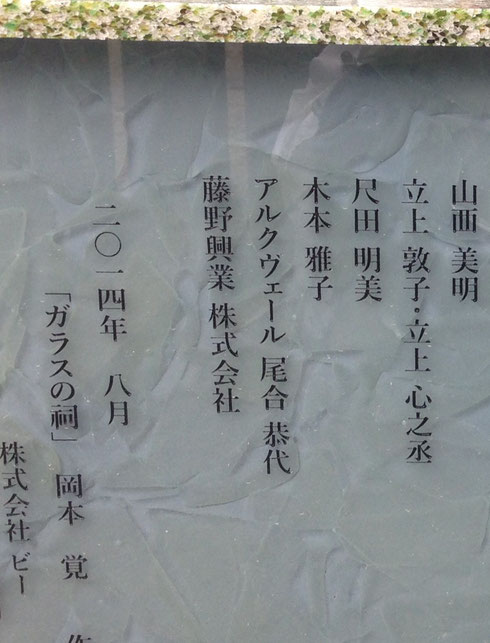 山西 美明
立上 敦子・立上 心之丞
尺田 明美
木本 雅子
アルクヴェール 尾合 恭代
藤野興業 株式会社
二〇一四年 八月
「ガラスの祠」 岡本 覚 作
株式会社 ビー